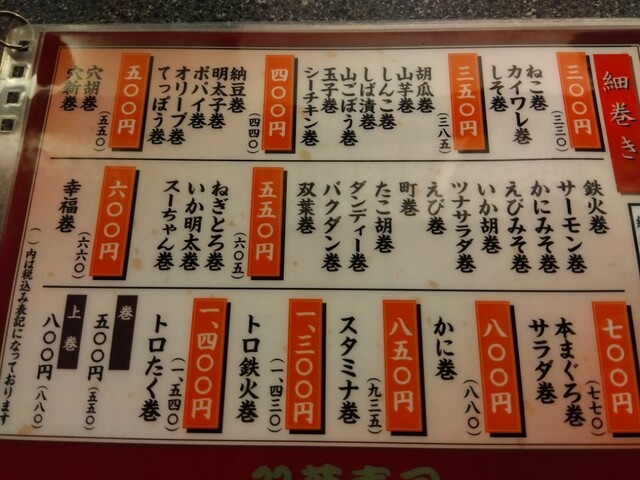 細巻き
三〇〇円
(三三〇)
ねこ巻
カイワレ巻
しそ巻
三五〇円
(三八五)
胡瓜巻
山芋巻
しんこ巻
しば漬巻
山ごぼう巻
玉子巻
シーチキン巻
四〇〇円
(四四〇)
納豆巻
明太子巻
ポパイ巻
オリーブ巻
てっぽう巻
五〇〇円
(五五〇)
穴胡巻
穴新巻
鉄火巻
サーモン巻
かにみそ巻
えびみそ巻
いか胡巻
ツナサラダ巻
えび巻
町巻
たこ胡巻
ダンディー巻
バクダン巻
双葉巻
五五〇円
(六〇五)
ねぎとろ巻
いか明太巻
スーちゃん巻
六〇〇円
(六六〇)
幸福巻
七〇〇円
(七七〇)
本まぐろ巻
サラダ巻
八〇〇円
(八八〇)
かに巻
八五〇円
(九三五)
スタミナ巻
一、三〇〇円
(一、四三〇)
トロ鉄火巻
一、四〇〇円
(一、五四〇)
トロたく巻
巻
五〇〇円(五五〇)
上巻
八〇〇円(八八〇)
( )内は税込み表記になっております